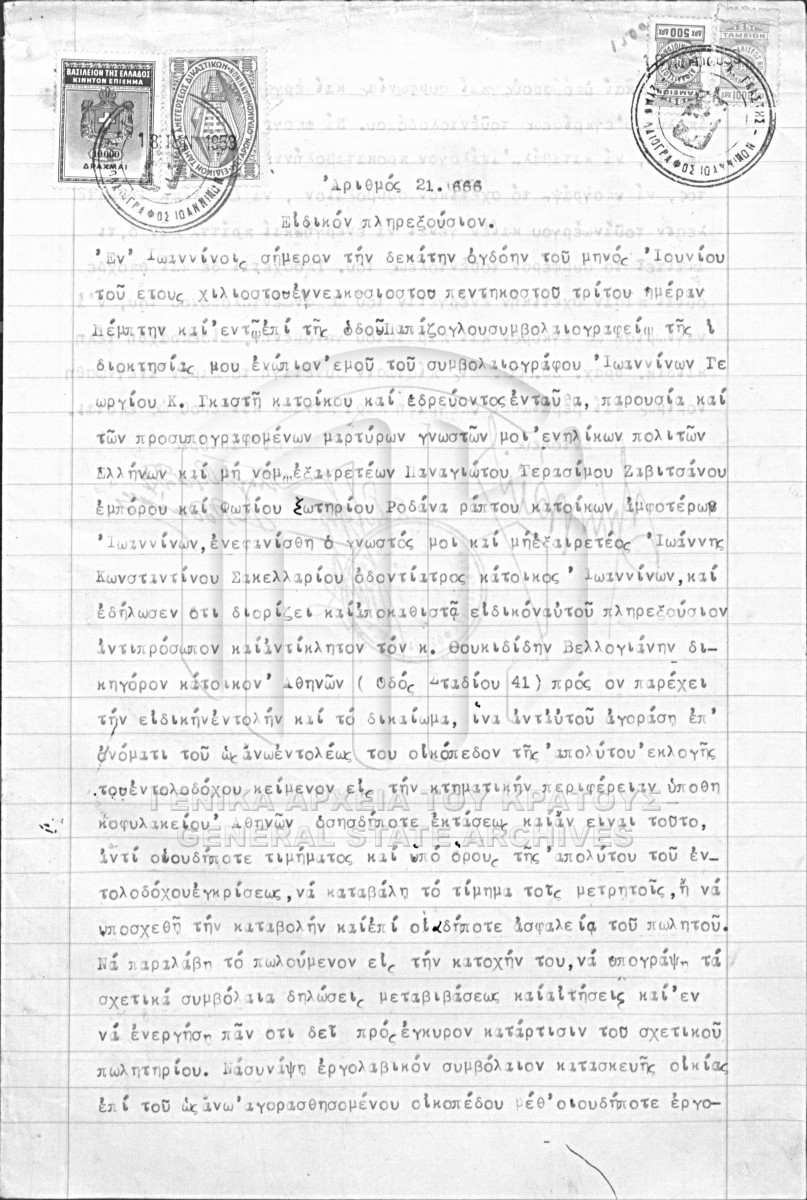 ΒΑΣΙΛΕΙΟΝ ΤΗΣ ΕΛΛΑΔΟΣ
ΚΙΝΗΤΟΝ ΕΠΙΣΗΜΑ
10.000
ΔΡΑΧΜΑΙ
18 ΙΟΥΝ 1953
ΑΝΕΓΕΡΣΕΩΣ ΔΙΚΑΣΤΙΚΩΝ
500 ΔΡΧ
ΤΑΜΕΙΟΝ
ΣΥΜΒΟΛΑΙΟΓΡΑΦΟΣ ΙΩΑΝΝΙΝΩΝ
Ἀριθμός 21.666
Εἰδικόν πληρεξούσιον.
Ἐν Ἰωαννίνοις σήμερον τήν δεκάτην ὀγδόην τοῦ μηνός Ἰουνίου
τοῦ ετους χιλιοστοῦἐννεακοσιοστοῦ πεντηκοστοῦ τρίτου ἡμέραν
Πέμπτην καί ἐντῷἐπί τῆς ὁδοῦΠαπάζογλουσυμβολαιογραφείῳ τῆς ἰ
διοκτησίας μου ἐνώπιον ἐμοῦ τοῦ συμβολαιογράφου Ἰωαννίνων Γε
ωργίου Κ. Γκαστῆ κατοίκου καί ἑδρεύοντοςἐνταῦθα, παρουσία καί
τῶν προσυπογραφομένων μαρτύρων γνωστῶν μοι ἐνηλίκων πολιτῶν
Ελλήνων καί μή νόμ. ἐξαιρετέων Παναγιώτου Γερασίμου Ζαβιτσάνου
ἐμπόρου καί Φωτίου Σωτηρίου Ροδίνα ράπτου κατοίκων ἀμφοτέρων
Ἰωαννίνων, ἐνεφανίσθη ὁ γνωστός μοι καί μήἐξαιρετέος Ἰωάννης
Κωνσταντίνου Σακελλαρίου ὀδοντίατρος κάτοικος Ἰωαννίνων, καί
ἐδήλωσεν οτι διορίζει καίἀποκαθιστᾷ εἰδικόναὐτοῦ πληρεξούσιον
ἀντιπρόσωπον καίἀντίκλητον τόν κ. Θουκιδίδην Βελλογιάνην δι-
κηγόρον κάτοικον Ἀθηνῶν ( Ὁδός Σταδίου 41) πρός ον παρέχει
τήν εἰδικήνἐντολήν καί τό δικαίωμα, ἵνα ἀντἰαὐτοῦ ἀγοράσῃ ἐπ'
ὀνόματι τοῦ ὡςἄνωἐντολέως του οἰκόπεδον τῆς ἀπολύτου ἐκλογῆς
τουἐντολοδόχου κείμενον εἰς τήν κτηματικήν περιφέρειαν ὑποθη
κοφυλακείου Ἀθηνῶν ὁσησδήποτε ἐκτάσεως καίἄν ειναι τοῦτο,
ἀντί οἱουδήποτε τιμήματος καί ὑπό ὅρους τῆς ἀπολύτου τοῦ ἐν-
τολοδόχουἐγκρίσεως, νά καταβάλῃ τό τίμημα τοῖς μετρητοῖς, ἤ νά
ὑποσχεθῇ τήν καταβολήν καίἐπί οἱαδήποτε ἀσφαλείᾳ τοῦ πωλητοῦ.
Νά παραλάβῃ τό πωλούμενον εἰς τήν κατοχήν του, νά ὑπογράψῃ τά
σχετικά συμβόλαια δηλώσεις μεταβιβάσεως καίαἰτήσεις καί ἐν
νά ἐνεργήσῃ πᾶν οτι δεῖ πρόςἔγκυρον κατάρτισιν τοῦ σχετικοῦ
πωλητηρίου. Νάσυνάψῃ ἐργολαβικόν συμβόλαιον κατασκευῆς οἰκίας
ἐπί τοῦ ὡςἄνω ἀγορασθησομένου οἰκοπέδου μέθ'οιουδήποτε ἐργο-
ΓΕΝΙΚΑ ΑΡΧΕΙΑ ΤΟΥ ΚΡΑΤΟΥΣ
GENERAL STATE ARCHIVES